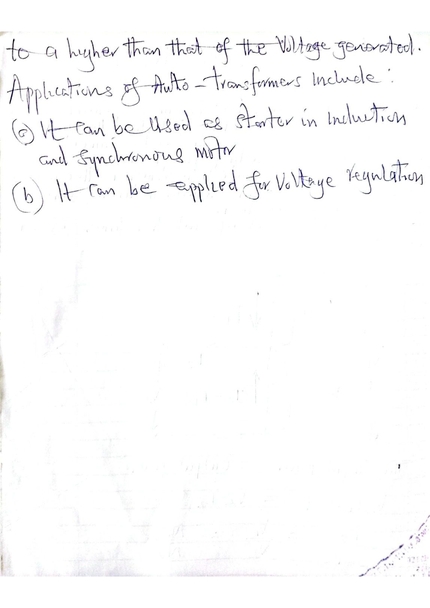 to a higher than that of the Voltage generated.
Applications of Auto-transformers Include:
(a) It can be used as starter in induction
and synchronous motor
(b) It can be applied for voltage regulation